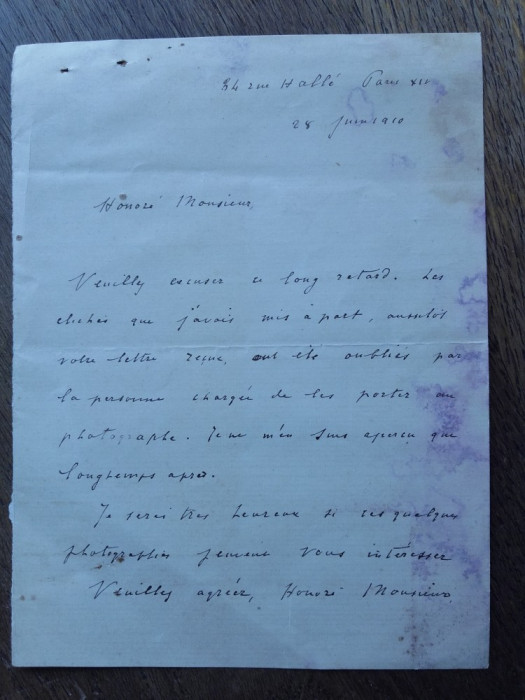 84 rue Hallé Paris XIV
28 Juin 1910
Honoré Monsieur,
Veuilley excuser ce long retard. Les
clichés que j'avais mis à part, aussitôt
votre lettre reçue, ont été oubliés par
la personne chargée de les porter au
photographe. Je ne m'en suis aperçu que
longtemps après.
Je serai très heureux si ces quelques
photographies peuvent vous intéresser
Veuilley agréer, Honoré Monsieur